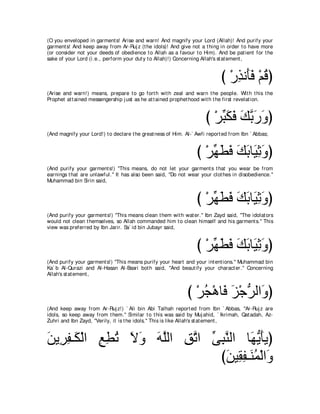 (O you enveloped in garments! Arise and warn! And magnify your Lord (Allah)! And purify your
garments! And keep away from Ar-Rujz (the idols)! And give not a thing in order to have more
(or consider not your deeds of obedience to Allah as a favour to Him). And be patient for the
sake of your Lord (i.e., perform your duty to Allah)!) Concerning Allah's statement,
(قُمْ فَأَنذِرْ )
(Arise and warn!) means, prepare to go forth with zeal and warn the people. With this the
Prophet attained messengership just as he attained prophethood with the first revelation.
(وَرَبَّكَ فَكَبِّرْ )
(And magnify your Lord!) to declare the greatness of Him. Al-`Awfi reported from Ibn `Abbas;
(وَثِيَابَكَ فَطَهِّرْ )
(And purify your garments!) "This means, do not let your garments that you wear be from
earnings that are unlawful." It has also been said, "Do not wear your clothes in disobedience."
Muhammad bin Sirin said,
(وَثِيَابَكَ فَطَهِّرْ )
(And purify your garments!) "This means clean them with water." Ibn Zayd said, "The idolators
would not clean themselves, so Allah commanded him to clean himself and his garments." This
view was preferred by Ibn Jarir. Sa`id bin Jubayr said,
(وَثِيَابَكَ فَطَهِّرْ )
(And purify your garments!) "This means purify your heart and your intentions." Muhammad bin
Ka`b Al-Qurazi and Al-Hasan Al-Basri both said, "And beautify your character." Concerning
Allah's statement,
(وَالرُّجْزَ فَاهْجُرْ )
(And keep away from Ar-Rujz!) `Ali bin Abi Talhah reported from Ibn `Abbas, "Ar-Rujz are
idols, so keep away from them." Similar to this was said by Mujahid, `Ikrimah, Qatadah, Az-
Zuhri and Ibn Zayd, "Verily, it is the idols." This is like Allah's statement,
(يأَيُّهَا النَّبِىِّ اتَّقِ اللَّهَ وَلاَ تُطِعِ الْكَـفِرِينَ
وَالْمُنَـفِقِينَ)